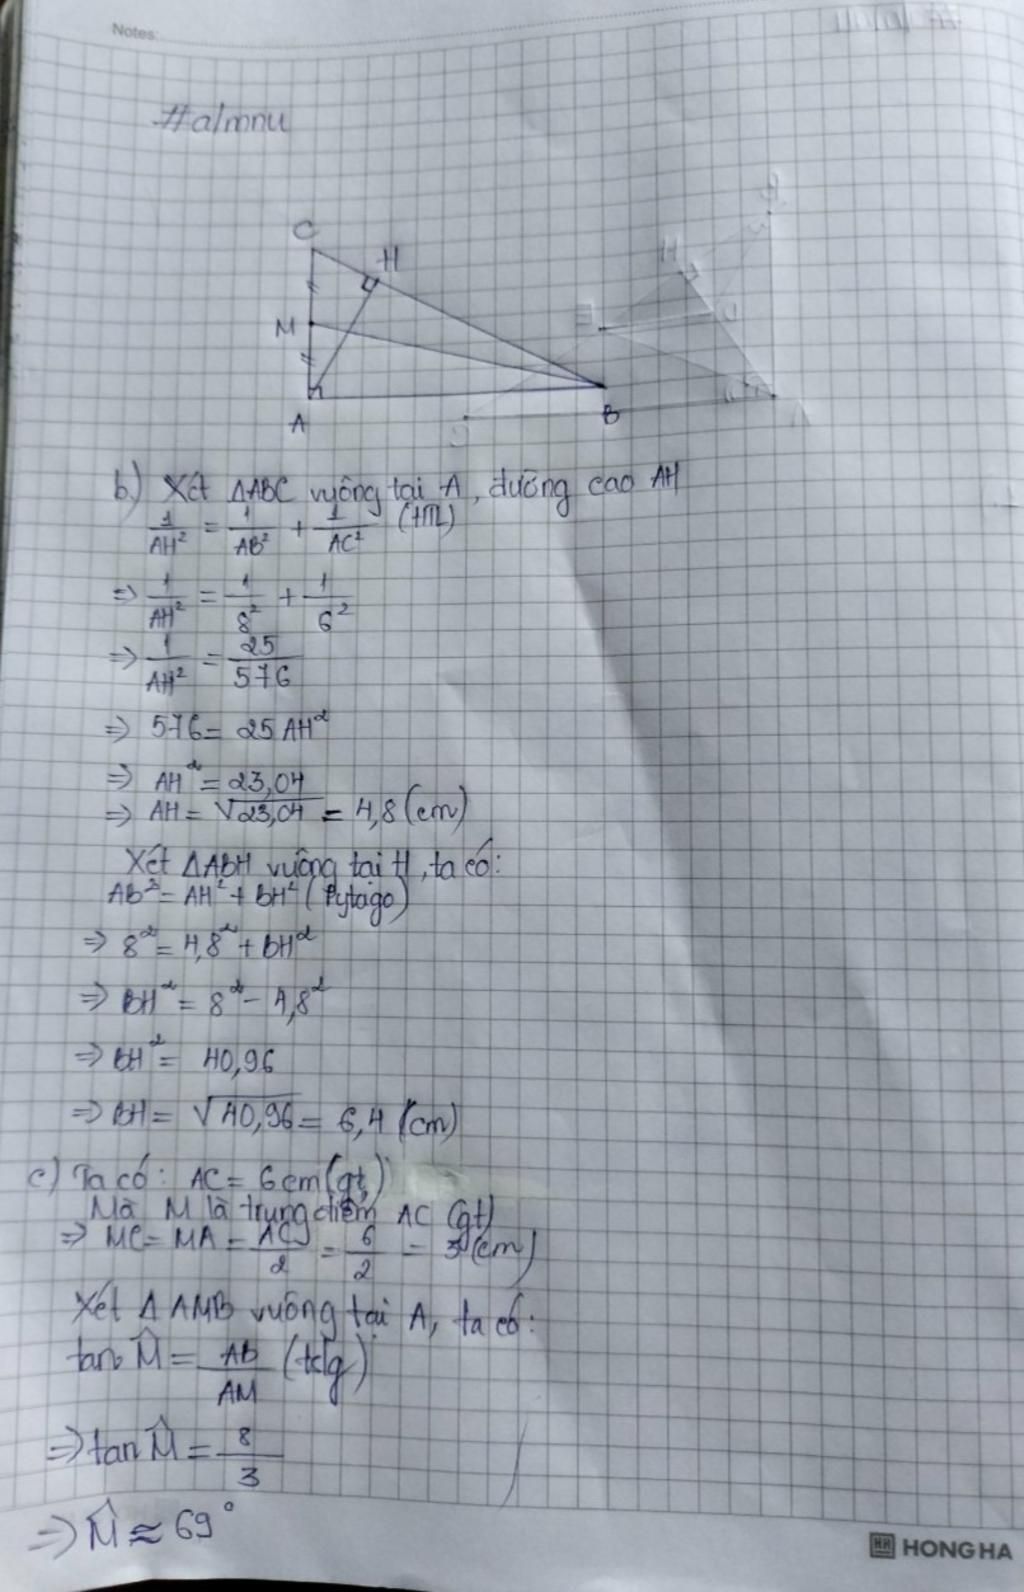 Notes:
#almnu
C
H
M
A
B
b) Xét ΔABC vuông tại A, đường cao AH
1/AH² = 1/AB² + 1/AC² (HTL)
=> 1/AH² = 1/8² + 1/6²
=> 1/AH² = 25/576
=> 576 = 25 AH²
=> AH² = 23,04
=> AH = √23,04 = 4,8 (cm)
Xét ΔABH vuông tại H, ta có:
AB² = AH² + BH² (Pytago)
=> 8² = 4,8² + BH²
=> BH² = 8² - 4,8²
=> BH² = 40,96
=> BH = √40,96 = 6,4 (cm)
c) Ta có: AC = 6cm (gt)
Mà M là trung điểm AC (gt)
=> MC = MA = AC/2 = 6/2 = 3 (cm)
Xét Δ AMB vuông tại A, ta có:
tan M̂ = AB/AM (tslg)
=> tan M̂ = 8/3
=> M̂ ≈ 69°
HH HONG HA